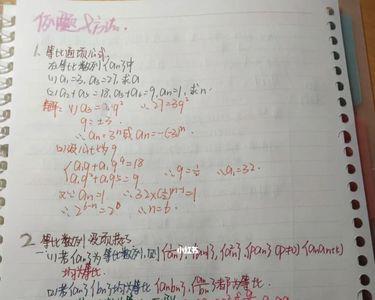 例题&方法.
1. 等比通项公式.
在等比数列{an}中
(1) a₁=3, a₃=27, 求a
(2) a₂+a₅=18, a₃+a₆=9, an=1, 求n.
解: (1) a₃=a₁q² ∴27=3q²
q=±3.
∴an=3ⁿ或an=-(-3)ⁿ.
(2)设公比为q
{a₁q+a₁q⁴=18
a₁q²+a₁q⁵=9 ∴q=½ ∴a₁=32.
又∵an=1 ∴32×(½)ⁿ⁻¹=1
∴2⁶⁻ⁿ=2⁰ ∴n=6.
2. 等比数列及项技巧
(1) 若{an}为等比数列, 则{an}, {an²}, {pan}(p≠0) {anan+k}
均为等比.
(2) 若{an}{bn}均为等比 {anbn}, {an/bn}都为等比.
小红书